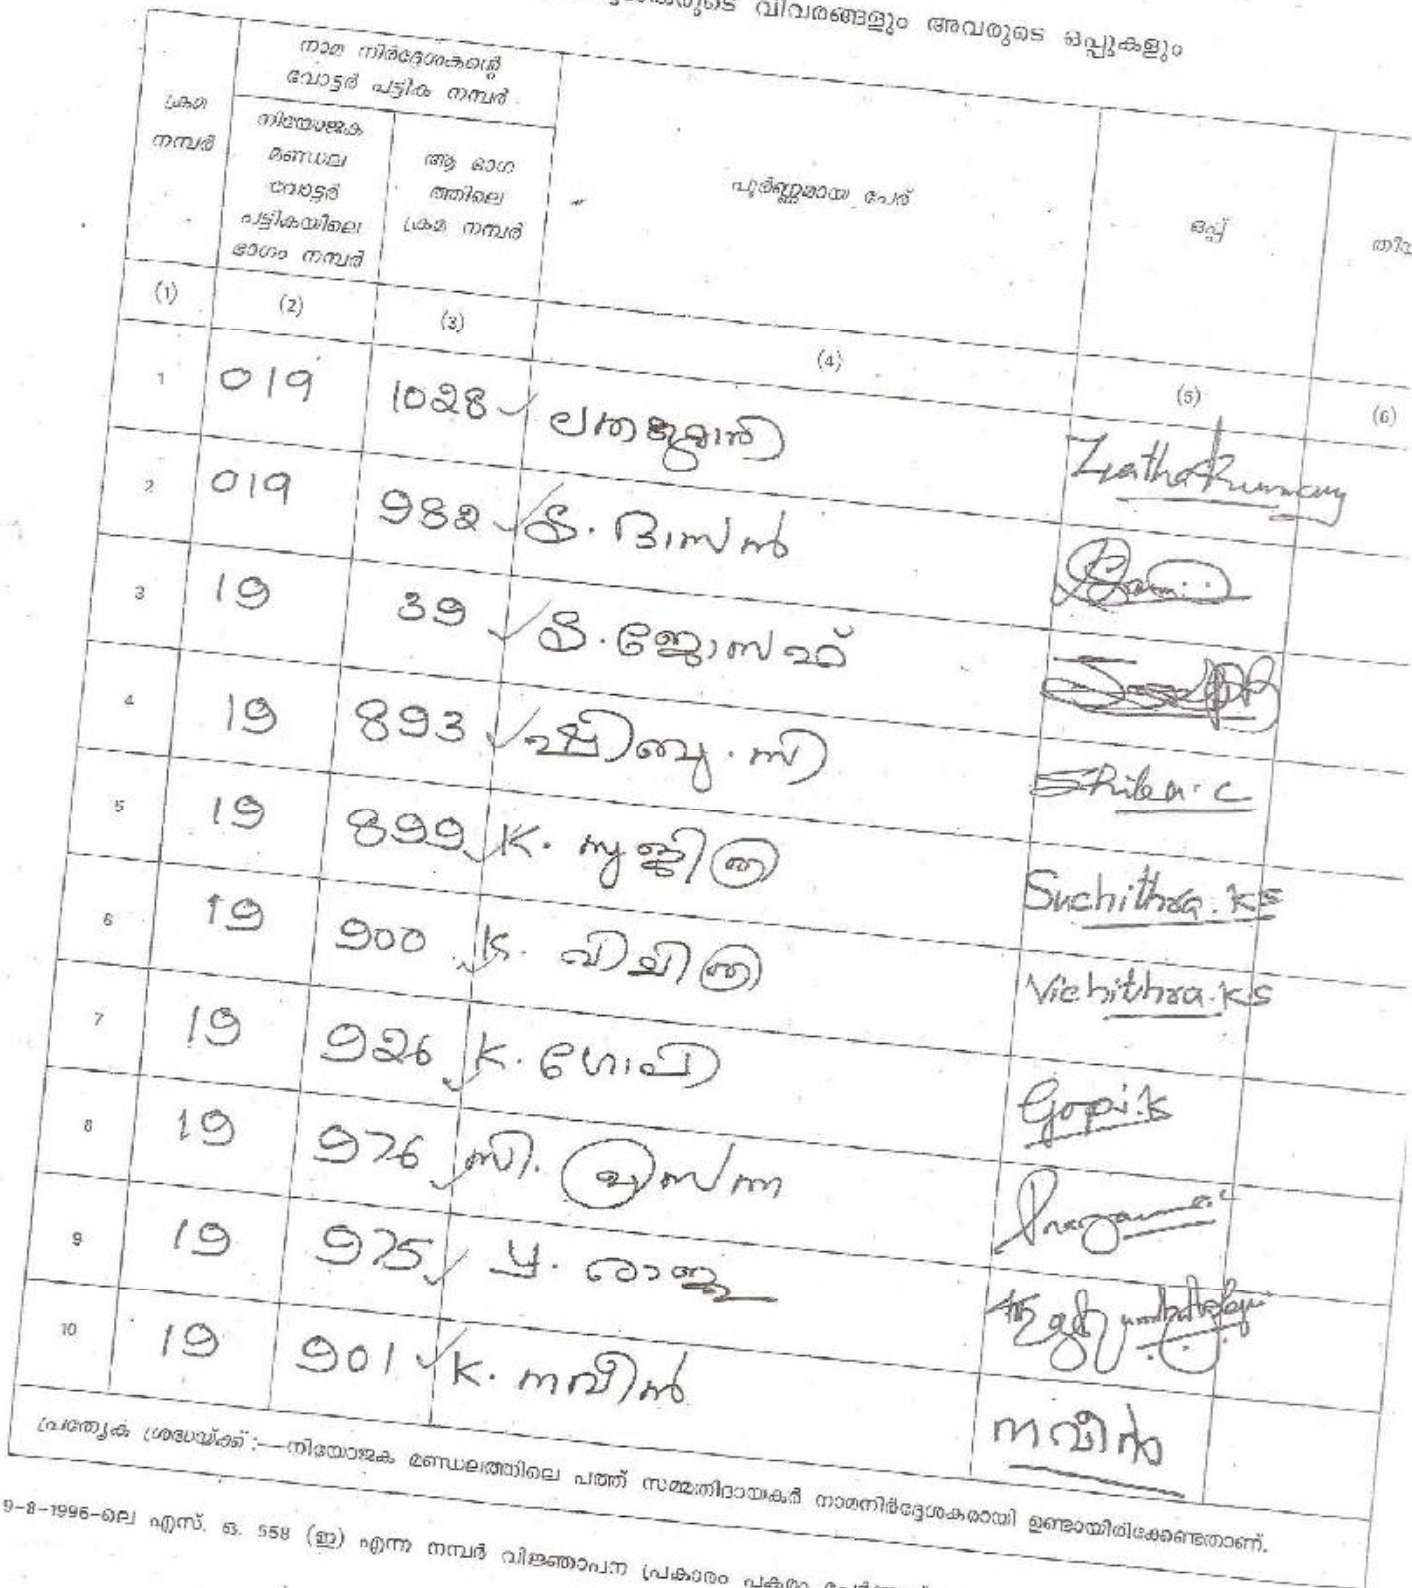 വിവരങ്ങളും അവരുടെ ഒപ്പുകളും
ക്രമ നമ്പർ
നാമ നിർദ്ദേശകന്റെ
വോട്ടർ പട്ടിക നമ്പർ
നിയോജക
മണ്ഡല
വോട്ടർ
പട്ടികയിലെ
ഭാഗം നമ്പർ
ആ ഭാഗ
ത്തിലെ
ക്രമ നമ്പർ
പൂർണ്ണമായ പേര്
ഒപ്പ്
(1) (2) (3) (4) (5) (6)
1 019 1028 ലതകുമാരി Lathakumary
2 019 982 ടി. ദാസൻ
3 19 39 ടി. ജോസഫ്
4 19 893 ഷീബ. സി Shiba. C
5 19 899 K. സുചിത്ര Suchithra. KS
6 19 900 K. വിചിത്ര Vichithra. K.S
7 19 926 K. ഗോപി Gopi.k
8 19 976 സി. പ്രസന്ന
9 19 975 പി. രാജു
10 19 901 K. നവീൻ നവീൻ
പ്രത്യേക ശ്രദ്ധയ്ക്ക് :— നിയോജക മണ്ഡലത്തിലെ പത്ത് സമ്മതിദായകർ നാമനിർദ്ദേശകരായി ഉണ്ടായിരിക്കേണ്ടതാണ്.
9-8-1996-ലെ എസ്. ഒ. 558 (ഇ) എന്ന നമ്പർ വിജ്ഞാപന പ്രകാരം പകരം